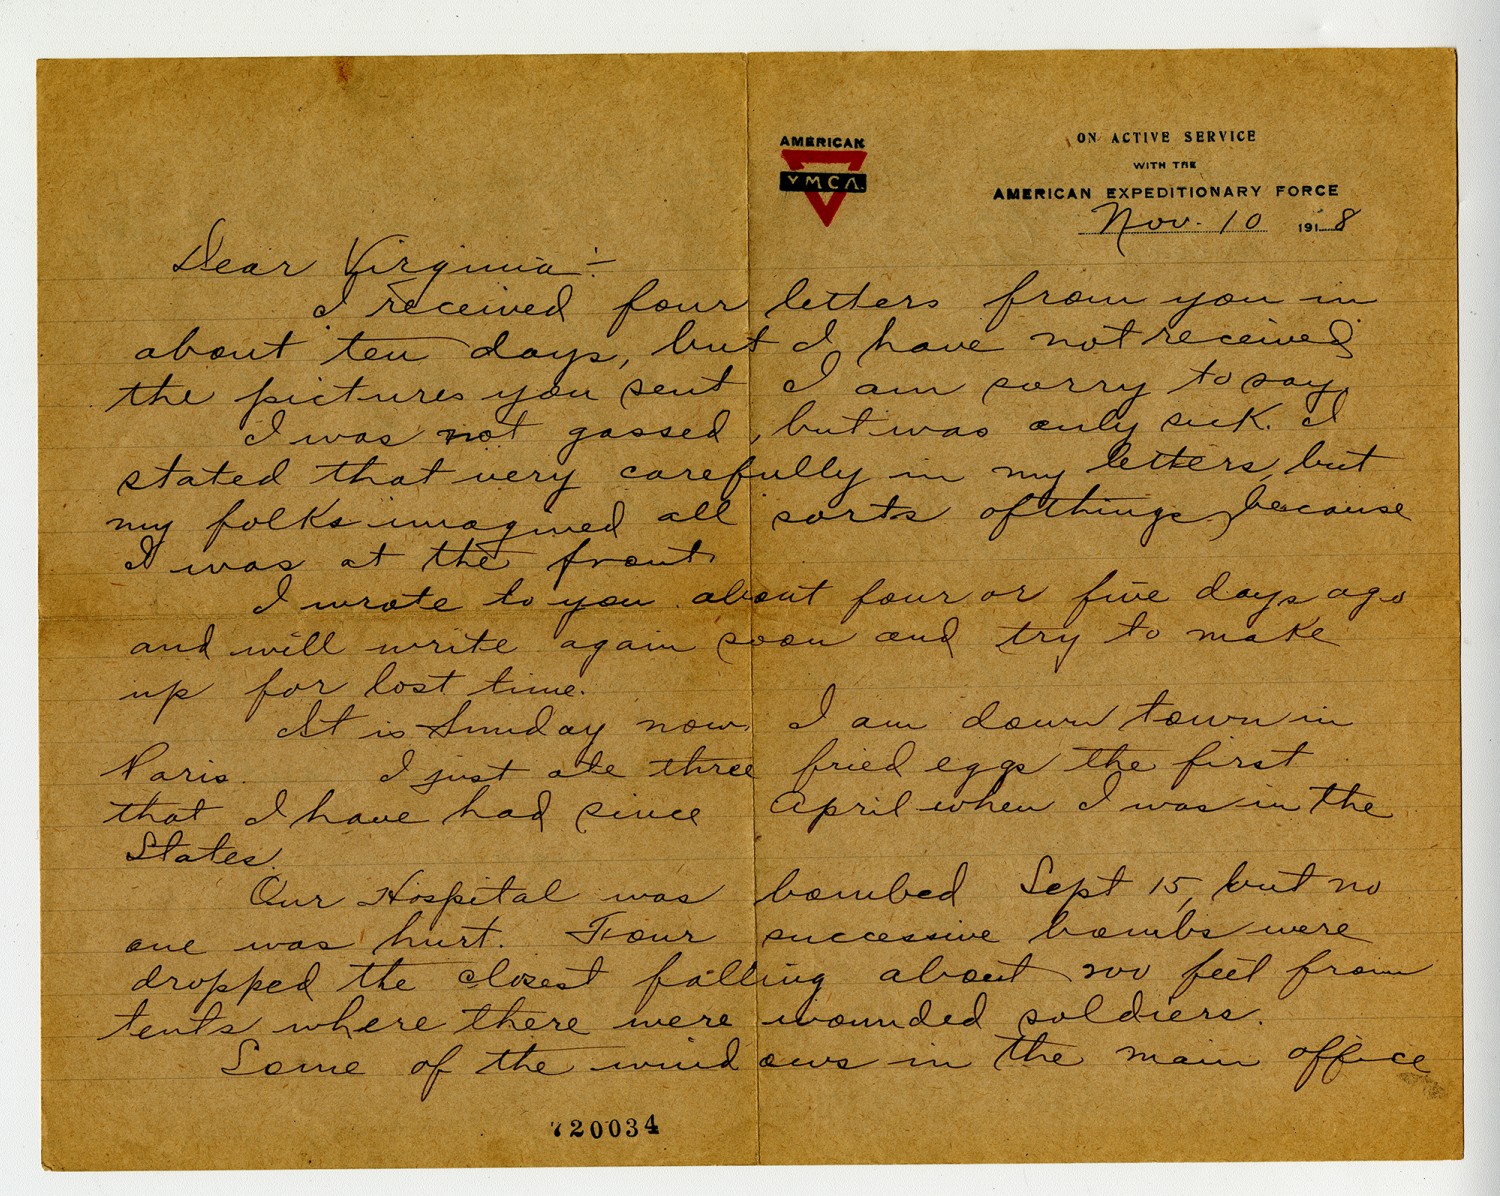 AMERICAN
YMCA
ON ACTIVE SERVICE
WITH THE
AMERICAN EXPEDITIONARY FORCE
Nov. 10 1918
Dear Virginia:-
I received four letters from you in
about ten days, but I have not received
the pictures you sent I am sorry to say.
I was not gassed, but was only sick. I
stated that very carefully in my letters, but
my folks imagined all sorts of things, because
I was at the front.
I wrote to you about four or five days ago
and will write again soon and try to make
up for lost time.
It is Sunday now. I am down town in
Paris. I just ate three fried eggs the first
that I have had since April when I was in the
States.
Our Hospital was bombed Sept 15, but no
one was hurt. Four successive bombs were
dropped the closest falling about 200 feet from
tents where there were wounded soldiers.
Some of the windows in the main office
720034